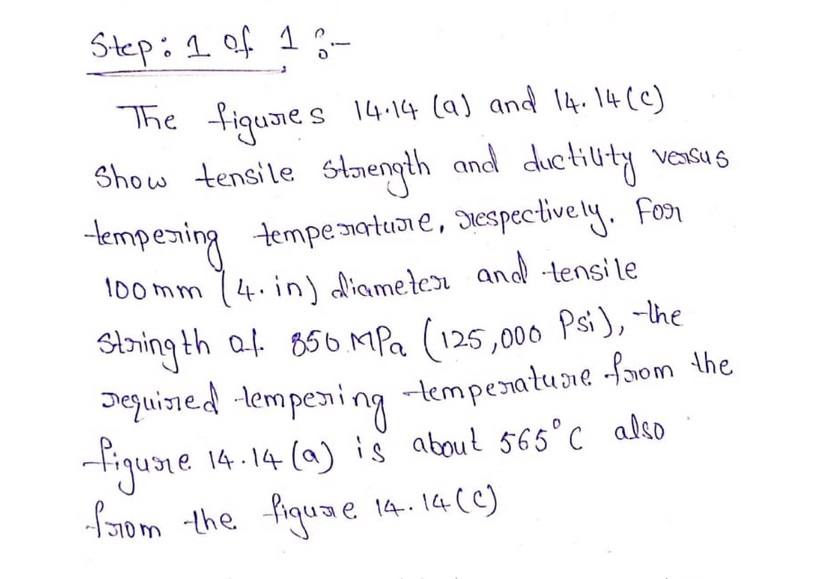 Step: 1 of 1 :-
The figures 14.14 (a) and 14.14 (c)
Show tensile strength and ductility versus
tempering temperature, respectively. For
100mm (4. in) diameter and tensile
stringth of 850 MPa (125,000 Psi), the
required tempering temperature from the
figure 14.14 (a) is about 565°C also
from the figure 14.14 (c)